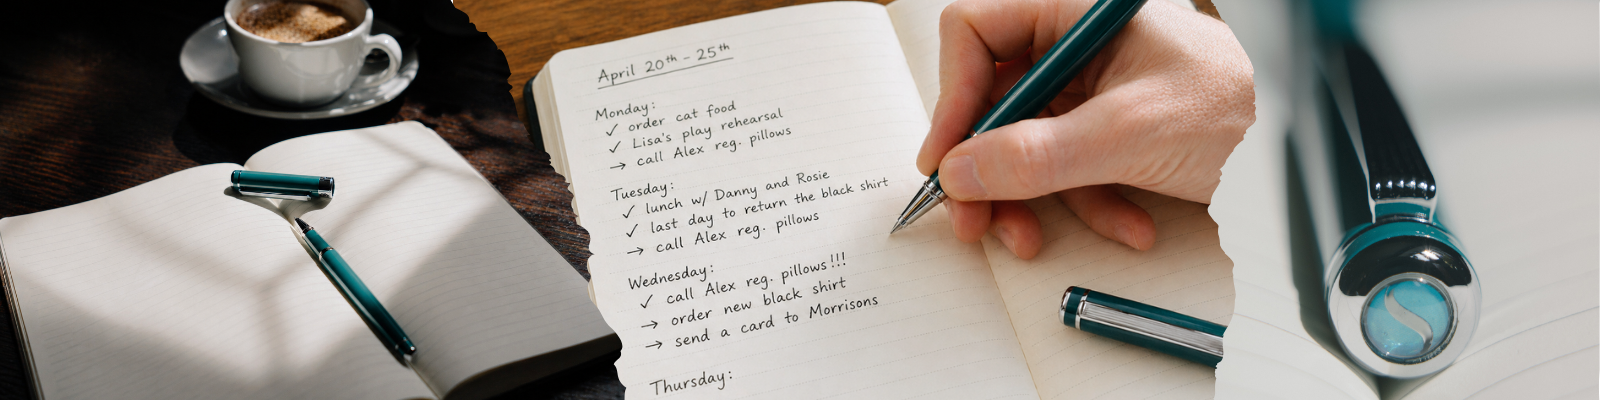 April 20th - 25th
Monday:
✓ order cat food
✓ Lisa's play rehearsal
→ call Alex reg. pillows
Tuesday:
✓ lunch w/ Danny and Rosie
✓ last day to return the black shirt
→ call Alex reg. pillows
Wednesday:
✓ call Alex reg. pillows!!!
→ order new black shirt
→ send a card to Morrisons
Thursday:
S